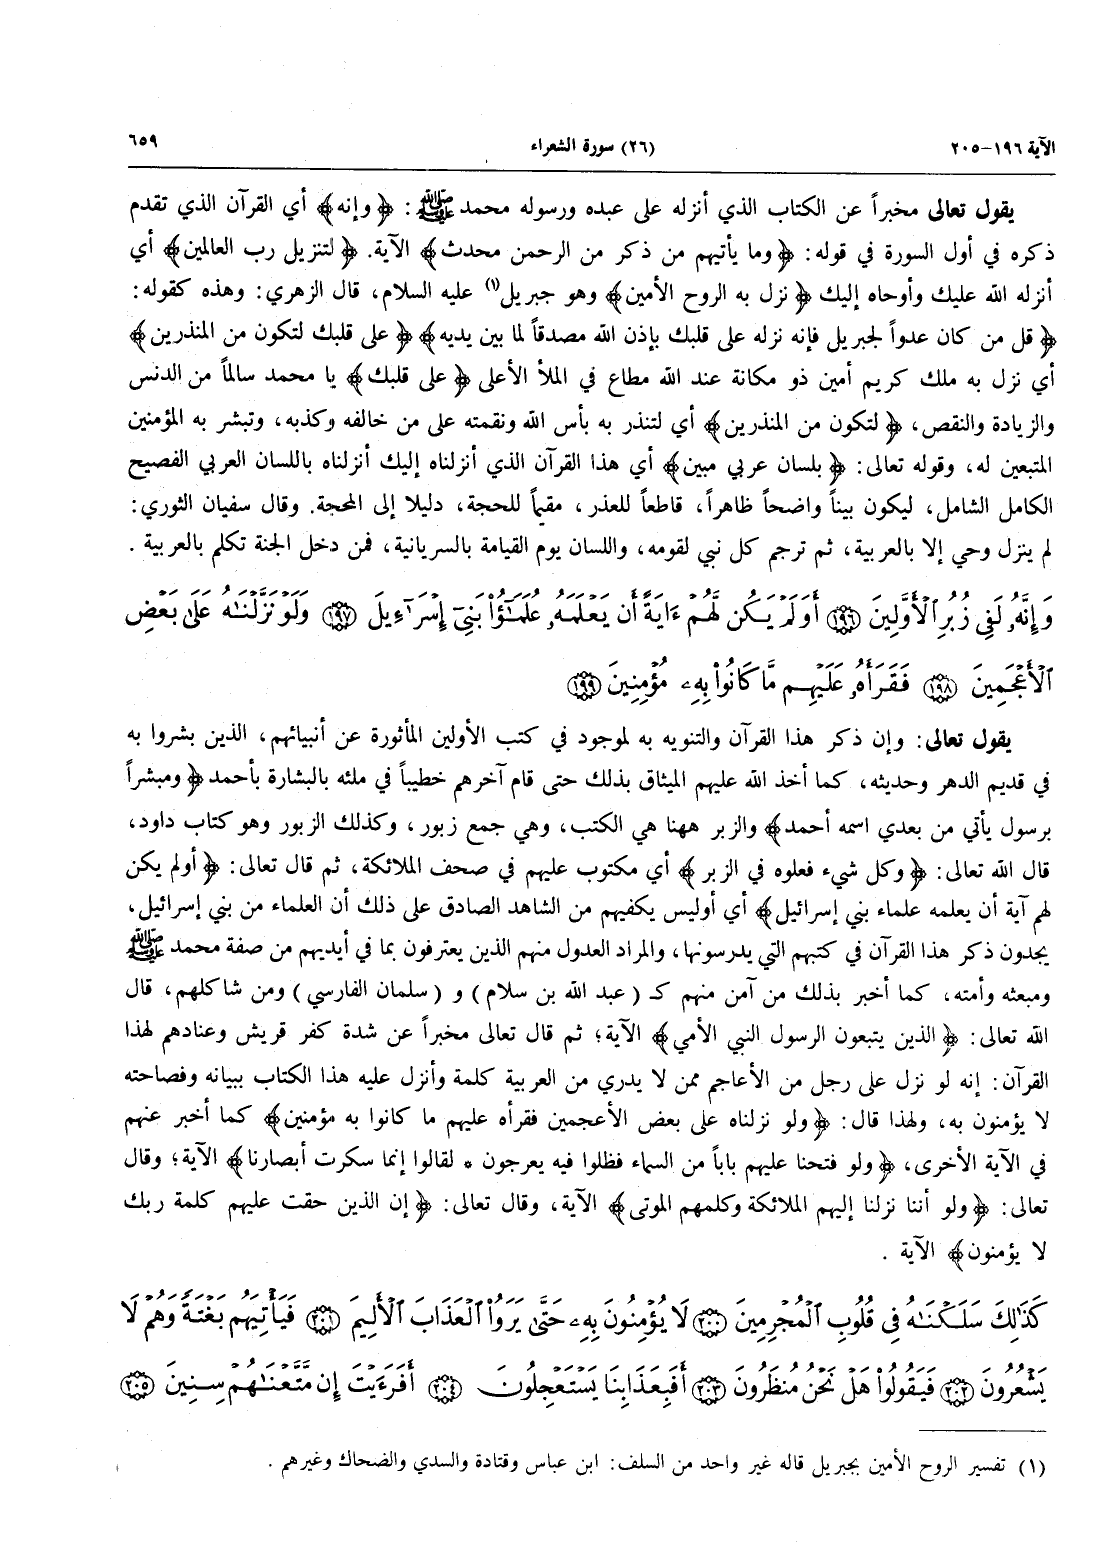 الآية ١٩٦-٢٠٥ (٢٦) سورة الشعراء ٦٥٩
يقول تعالى مخبراً عن الكتاب الذي أنزله على عبده ورسوله محمد ﷺ: ﴿وإنه﴾ أي القرآن الذي تقدم
ذكره في أول السورة في قوله: ﴿وما يأتيهم من ذكر من الرحمن محدث﴾ الآية. ﴿لتنزيل رب العالمين﴾ أي
أنزله الله عليك وأوحاه إليك ﴿نزل به الروح الأمين﴾ وهو جبريل(١) عليه السلام، قال الزهري: وهذه كقوله:
﴿قل من كان عدواً لجبريل فإنه نزله على قلبك بإذن الله مصدقاً لما بين يديه﴾ ﴿على قلبك لتكون من المنذرين﴾
أي نزل به ملك كريم أمين ذو مكانة عند الله مطاع في الملأ الأعلى ﴿على قلبك﴾ يا محمد سالماً من الدنس
والزيادة والنقص، ﴿لتكون من المنذرين﴾ أي لتنذر به بأس الله ونقمته على من خالفه وكذبه، وتبشر به المؤمنين
المتبعين له، وقوله تعالى: ﴿بلسان عربي مبين﴾ أي هذا القرآن الذي أنزلناه إليك أنزلناه باللسان العربي الفصيح
الكامل الشامل، ليكون بيناً واضحاً ظاهراً، قاطعاً للعذر، مقيماً للحجة، دليلا إلى المحجة. وقال سفيان الثوري:
لم ينزل وحي إلا بالعربية، ثم ترجم كل نبي لقومه، واللسان يوم القيامة بالسريانية، فمن دخل الجنة تكلم بالعربية .
وَإِنَّهُۥ لَفِى زُبُرِ ٱلْأَوَّلِينَ ١٩٦ أَوَلَمْ يَكُن لَّهُمْ ءَايَةً أَن يَعْلَمَهُۥ عُلَمَٰٓؤُا۟ بَنِىٓ إِسْرَٰٓءِيلَ ١٩٧ وَلَوْ نَزَّلْنَٰهُ عَلَىٰ بَعْضِ
ٱلْأَعْجَمِينَ ١٩٨ فَقَرَأَهُۥ عَلَيْهِم مَّا كَانُوا۟ بِهِۦ مُؤْمِنِينَ ١٩٩
يقول تعالى: وإن ذكر هذا القرآن والتنويه به لموجود في كتب الأولين المأثورة عن أنبيائهم، الذين بشروا به
في قديم الدهر وحديثه، كما أخذ الله عليهم الميثاق بذلك حتى قام آخرهم خطيباً في ملئه بالبشارة بأحمد ﴿ومبشراً
برسول يأتي من بعدي اسمه أحمد﴾ والزبر ههنا هي الكتب، وهي جمع زبور، وكذلك الزبور وهو كتاب داود،
قال الله تعالى: ﴿وكل شيء فعلوه في الزبر﴾ أي مكتوب عليهم في صحف الملائكة، ثم قال تعالى: ﴿أولم يكن
لهم آية أن يعلمه علماء بني إسرائيل﴾ أي أوليس يكفيهم من الشاهد الصادق على ذلك أن العلماء من بني إسرائيل،
يجدون ذكر هذا القرآن في كتبهم التي يدرسونها، والمراد العدول منهم الذين يعترفون بما في أيديهم من صفة محمد ﷺ
ومبعثه وأمته، كما أخبر بذلك من آمن منهم كـ (عبد الله بن سلام) و (سلمان الفارسي) ومن شاكلهم، قال
الله تعالى: ﴿الذين يتبعون الرسول النبي الأمي﴾ الآية؛ ثم قال تعالى مخبراً عن شدة كفر قريش وعنادهم لهذا
القرآن: إنه لو نزل على رجل من الأعاجم ممن لا يدري من العربية كلمة وأنزل عليه هذا الكتاب ببيانه وفصاحته
لا يؤمنون به، ولهذا قال: ﴿ولو نزلناه على بعض الأعجمين فقرأه عليهم ما كانوا به مؤمنين﴾ كما أخبر عنهم
في الآية الأخرى، ﴿ولو فتحنا عليهم باباً من السماء فظلوا فيه يعرجون * لقالوا إنما سكرت أبصارنا﴾ الآية؛ وقال
تعالى: ﴿ولو أننا نزلنا إليهم الملائكة وكلمهم الموتى﴾ الآية، وقال تعالى: ﴿إن الذين حقت عليهم كلمة ربك
لا يؤمنون﴾ الآية .
كَذَٰلِكَ سَلَكْنَٰهُ فِى قُلُوبِ ٱلْمُجْرِمِينَ ٢٠٠ لَا يُؤْمِنُونَ بِهِۦ حَتَّىٰ يَرَوُا۟ ٱلْعَذَابَ ٱلْأَلِيمَ ٢٠١ فَيَأْتِيَهُم بَغْتَةً وَهُمْ لَا
يَشْعُرُونَ ٢٠٢ فَيَقُولُوا۟ هَلْ نَحْنُ مُنظَرُونَ ٢٠٣ أَفَبِعَذَابِنَا يَسْتَعْجِلُونَ ٢٠٤ أَفَرَءَيْتَ إِن مَّتَّعْنَٰهُمْ سِنِينَ ٢٠٥
(١) تفسير الروح الأمين بجبريل قاله غير واحد من السلف: ابن عباس وقتادة والسدي والضحاك وغيرهم .